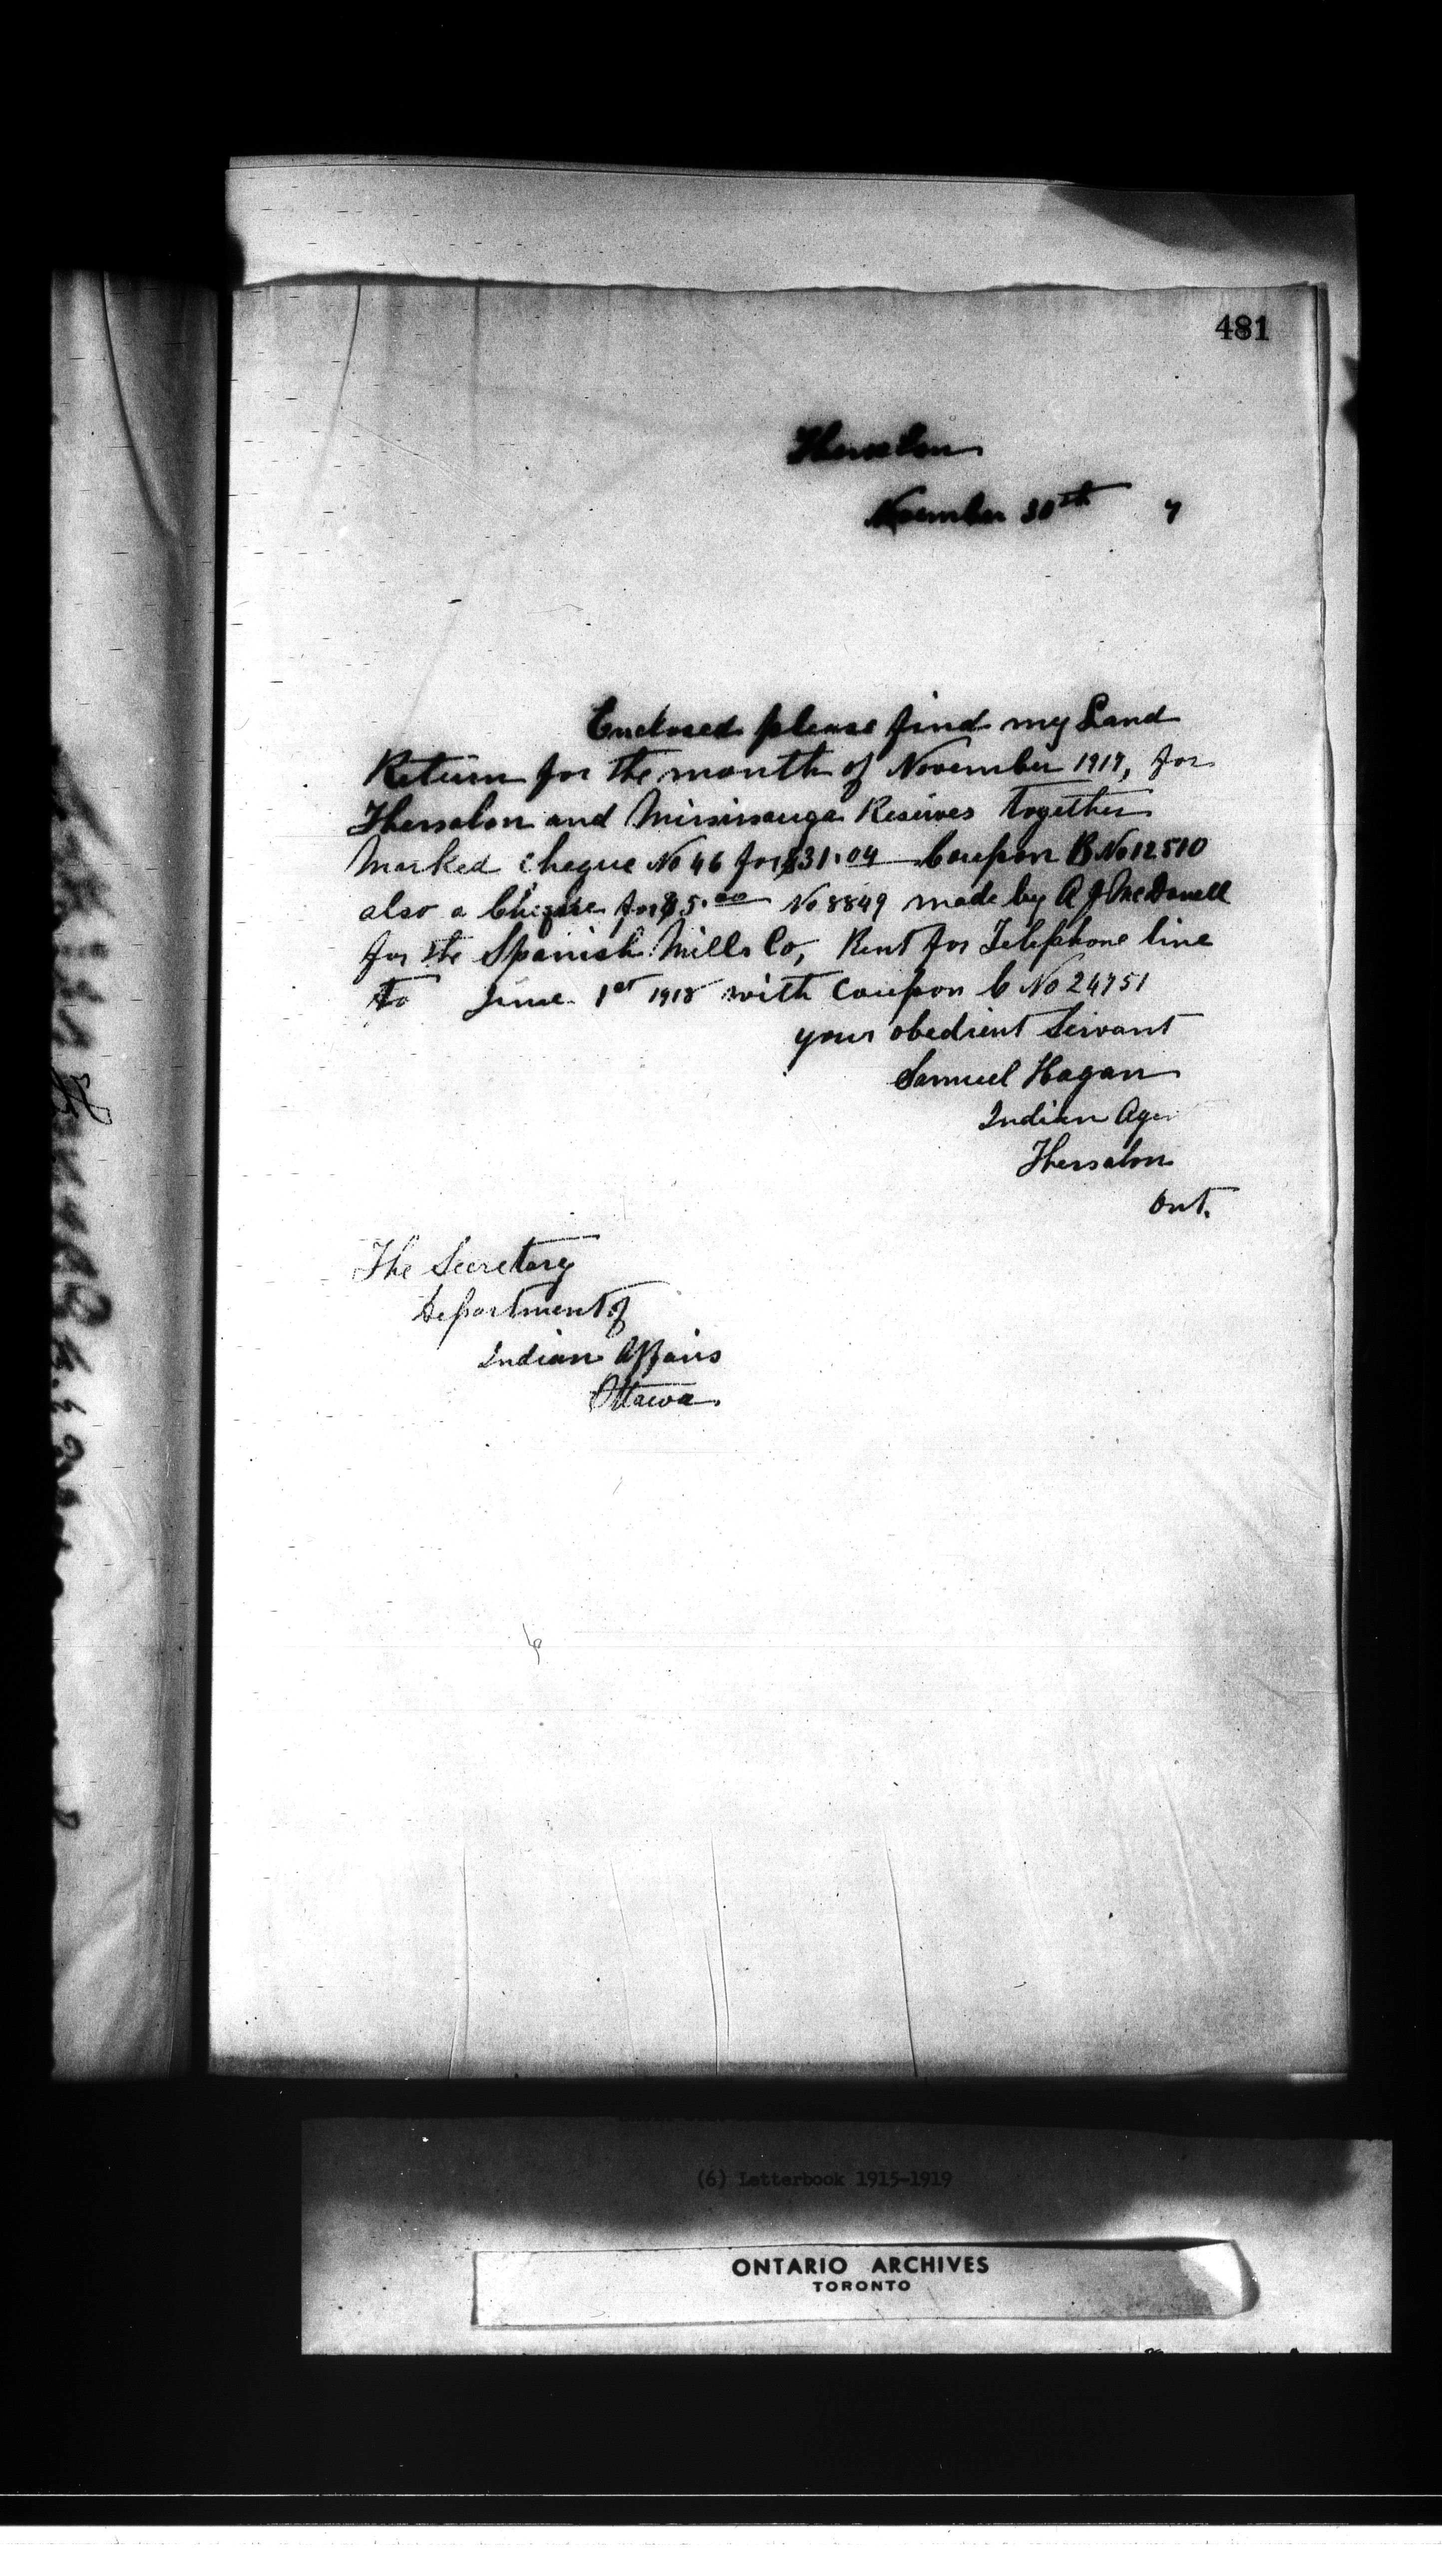 481
Thessalon
November 30th 7
Enclosed please find my Land
Return for the month of November 1917, for
Thessalon and Mississauga Reserves together
Marked cheque No 46 for $31.04 Coupon B No 12510
also a Cheque for $5.00 No 8849 made by A J McDonell
for the Spanish Mills Co, Rent for Telephone line
to June 1st 1918 with Coupon C No 24751
your obedient Servant
Samuel Hagan
Indian Agen
Thessalon
Ont.
The Secretary
Department of
Indian Affairs
Ottawa.
(6) Letterbook 1915-1919
ONTARIO ARCHIVES
TORONTO